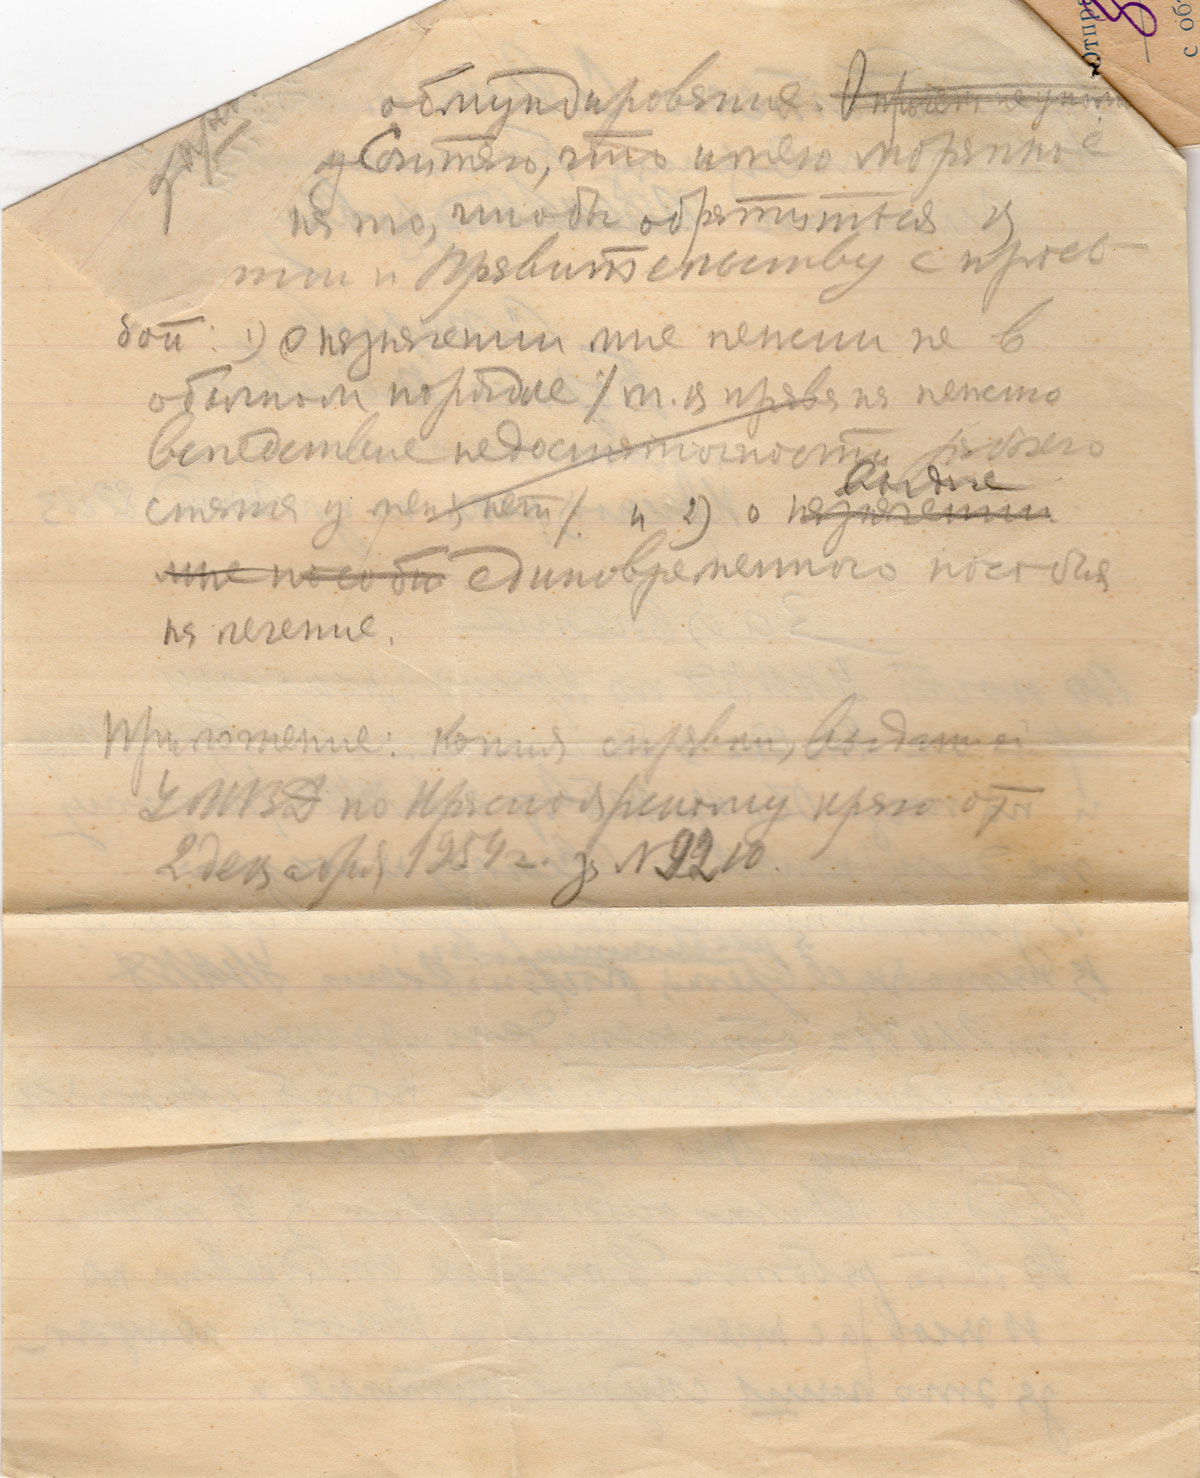 обмундирование. О прочем не упоми
Считаю, что имею моральное
на то, чтобы обратиться
ти и Правительству с прось-
бой: 1) О назначении мне пенсии не в
обычном порядке /т.к. права на пенсию
вследствие недостаточности рабочего
стажа у меня нет/ и 2) о назначении
выдаче
мне пособи единовременного пособия
на лечение.
Приложение: копия справки, выданной
УМВД по Красноярскому краю от
2 декабря 1954 г. за № 9210.
отпр
с об